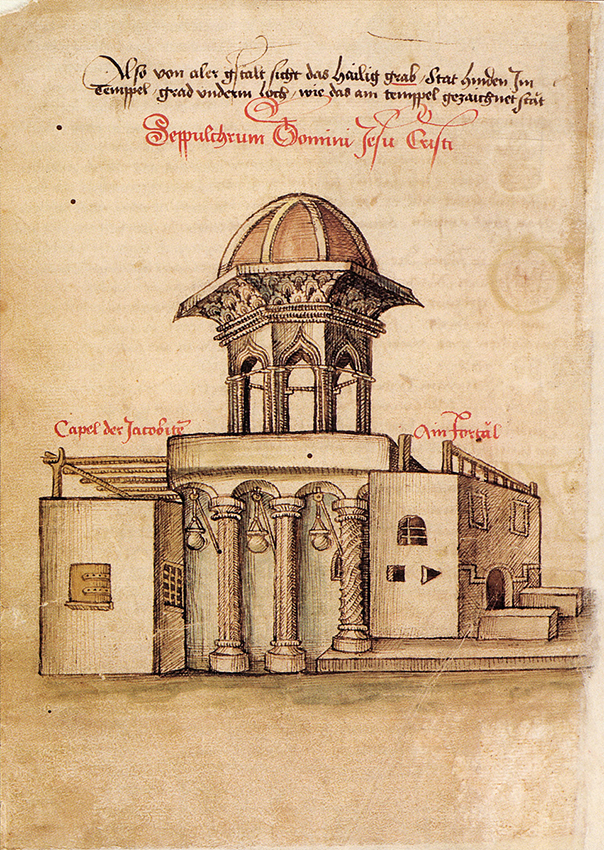 Also von aler gstalt sicht das hailig grab / Stat hinden Jm
Temppel / grad vnderm loch / wie das am temppel gezaichnet stat
Seppulchrum Domini Jesu Cristi
Capel der Jacobitē
Am Portal